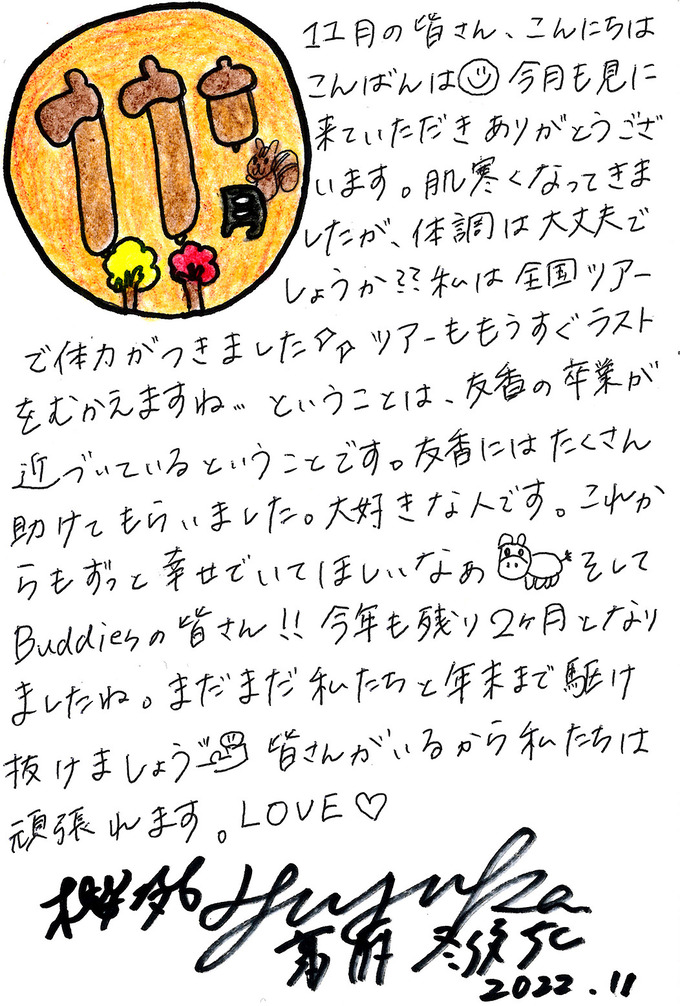 11月
11月の皆さん、こんにちは
こんばんは 今月も見に
来ていただきありがとうござ
います。肌寒くなってきま
したが、体調は大丈夫で
しょうか?? 私は全国ツアー
で体力がつきました ツアーももうすぐラスト
をむかえますね… ということは、友香の卒業が
近づいているということです。友香にはたくさん
助けてもらいました。大好きな人です。これか
らもずっと幸せでいてほしいなぁ そして
Buddiesの皆さん!! 今年も残り2ヶ月となり
ましたね。まだまだ私たちと年末まで駆け
抜けましょう 皆さんがいるから私たちは
頑張れます。LOVE♡
櫻坂46 Yuuka
齋藤 冬優花
2022.11